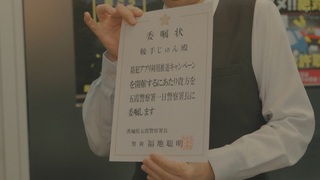 委嘱状
鮫手じゅん殿
防犯アプリ利用推進キャンペーン
を開催するにあたり貴方を
五霞警察署一日警察署長に
委嘱します
警察署長
警視 福地聡明